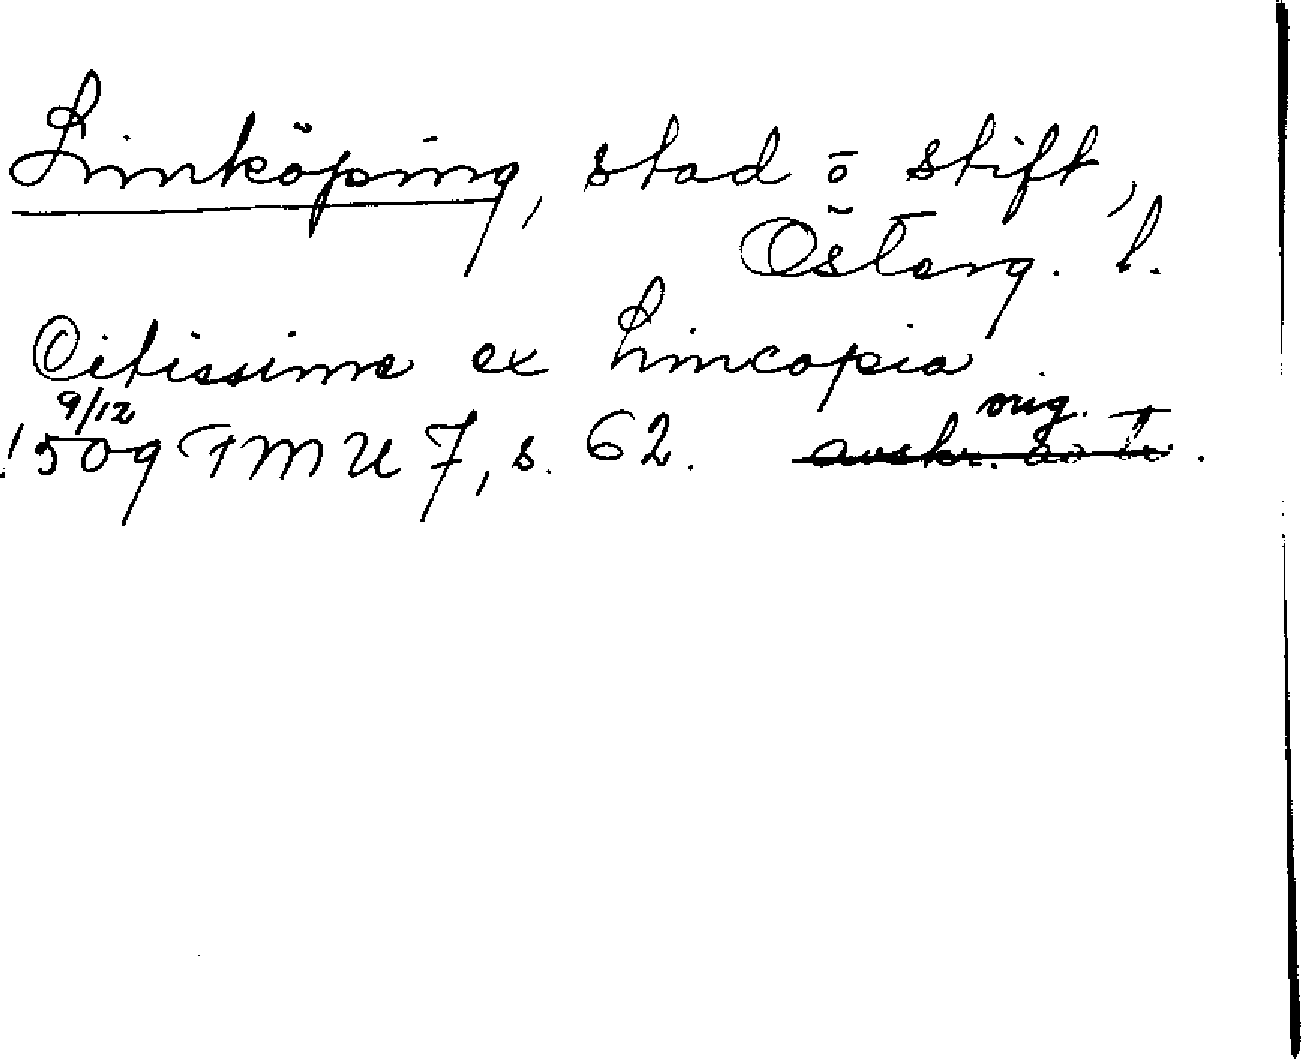 Linköping, stad o stift,
Österg. l.
Citissime ex Lincopia
9/12 orig.
1509 TMU 7, s. 62. avskr.